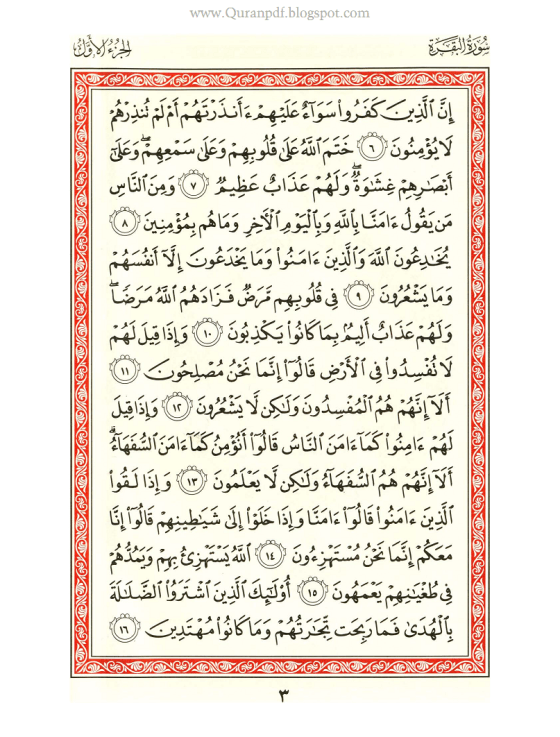 www.Quranpdf.blogspot.com
سُورَةُ البَقَرَةِ
الجُزْءُ الأَوَّلُ
إِنَّ ٱلَّذِينَ كَفَرُوا۟ سَوَآءٌ عَلَيْهِمْ ءَأَنذَرْتَهُمْ أَمْ لَمْ تُنذِرْهُمْ
لَا يُؤْمِنُونَ ٦ خَتَمَ ٱللَّهُ عَلَىٰ قُلُوبِهِمْ وَعَلَىٰ سَمْعِهِمْ ۖ وَعَلَىٰٓ
أَبْصَـٰرِهِمْ غِشَـٰوَةٌ ۖ وَلَهُمْ عَذَابٌ عَظِيمٌ ٧ وَمِنَ ٱلنَّاسِ
مَن يَقُولُ ءَامَنَّا بِٱللَّهِ وَبِٱلْيَوْمِ ٱلْـَٔاخِرِ وَمَا هُم بِمُؤْمِنِينَ ٨
يُخَـٰدِعُونَ ٱللَّهَ وَٱلَّذِينَ ءَامَنُوا۟ وَمَا يَخْدَعُونَ إِلَّآ أَنفُسَهُمْ
وَمَا يَشْعُرُونَ ٩ فِى قُلُوبِهِم مَّرَضٌ فَزَادَهُمُ ٱللَّهُ مَرَضًا ۖ
وَلَهُمْ عَذَابٌ أَلِيمٌۢ بِمَا كَانُوا۟ يَكْذِبُونَ ١٠ وَإِذَا قِيلَ لَهُمْ
لَا تُفْسِدُوا۟ فِى ٱلْأَرْضِ قَالُوٓا۟ إِنَّمَا نَحْنُ مُصْلِحُونَ ١١
أَلَآ إِنَّهُمْ هُمُ ٱلْمُفْسِدُونَ وَلَـٰكِن لَّا يَشْعُرُونَ ١٢ وَإِذَا قِيلَ
لَهُمْ ءَامِنُوا۟ كَمَآ ءَامَنَ ٱلنَّاسُ قَالُوٓا۟ أَنُؤْمِنُ كَمَآ ءَامَنَ ٱلسُّفَهَآءُ ۗ
أَلَآ إِنَّهُمْ هُمُ ٱلسُّفَهَآءُ وَلَـٰكِن لَّا يَعْلَمُونَ ١٣ وَإِذَا لَقُوا۟
ٱلَّذِينَ ءَامَنُوا۟ قَالُوٓا۟ ءَامَنَّا وَإِذَا خَلَوْا۟ إِلَىٰ شَيَـٰطِينِهِمْ قَالُوٓا۟ إِنَّا
مَعَكُمْ إِنَّمَا نَحْنُ مُسْتَهْزِءُونَ ١٤ ٱللَّهُ يَسْتَهْزِئُ بِهِمْ وَيَمُدُّهُمْ
فِى طُغْيَـٰنِهِمْ يَعْمَهُونَ ١٥ أُو۟لَـٰٓئِكَ ٱلَّذِينَ ٱشْتَرَوُا۟ ٱلضَّلَـٰلَةَ
بِٱلْهُدَىٰ فَمَا رَبِحَت تِّجَـٰرَتُهُمْ وَمَا كَانُوا۟ مُهْتَدِينَ ١٦
٣